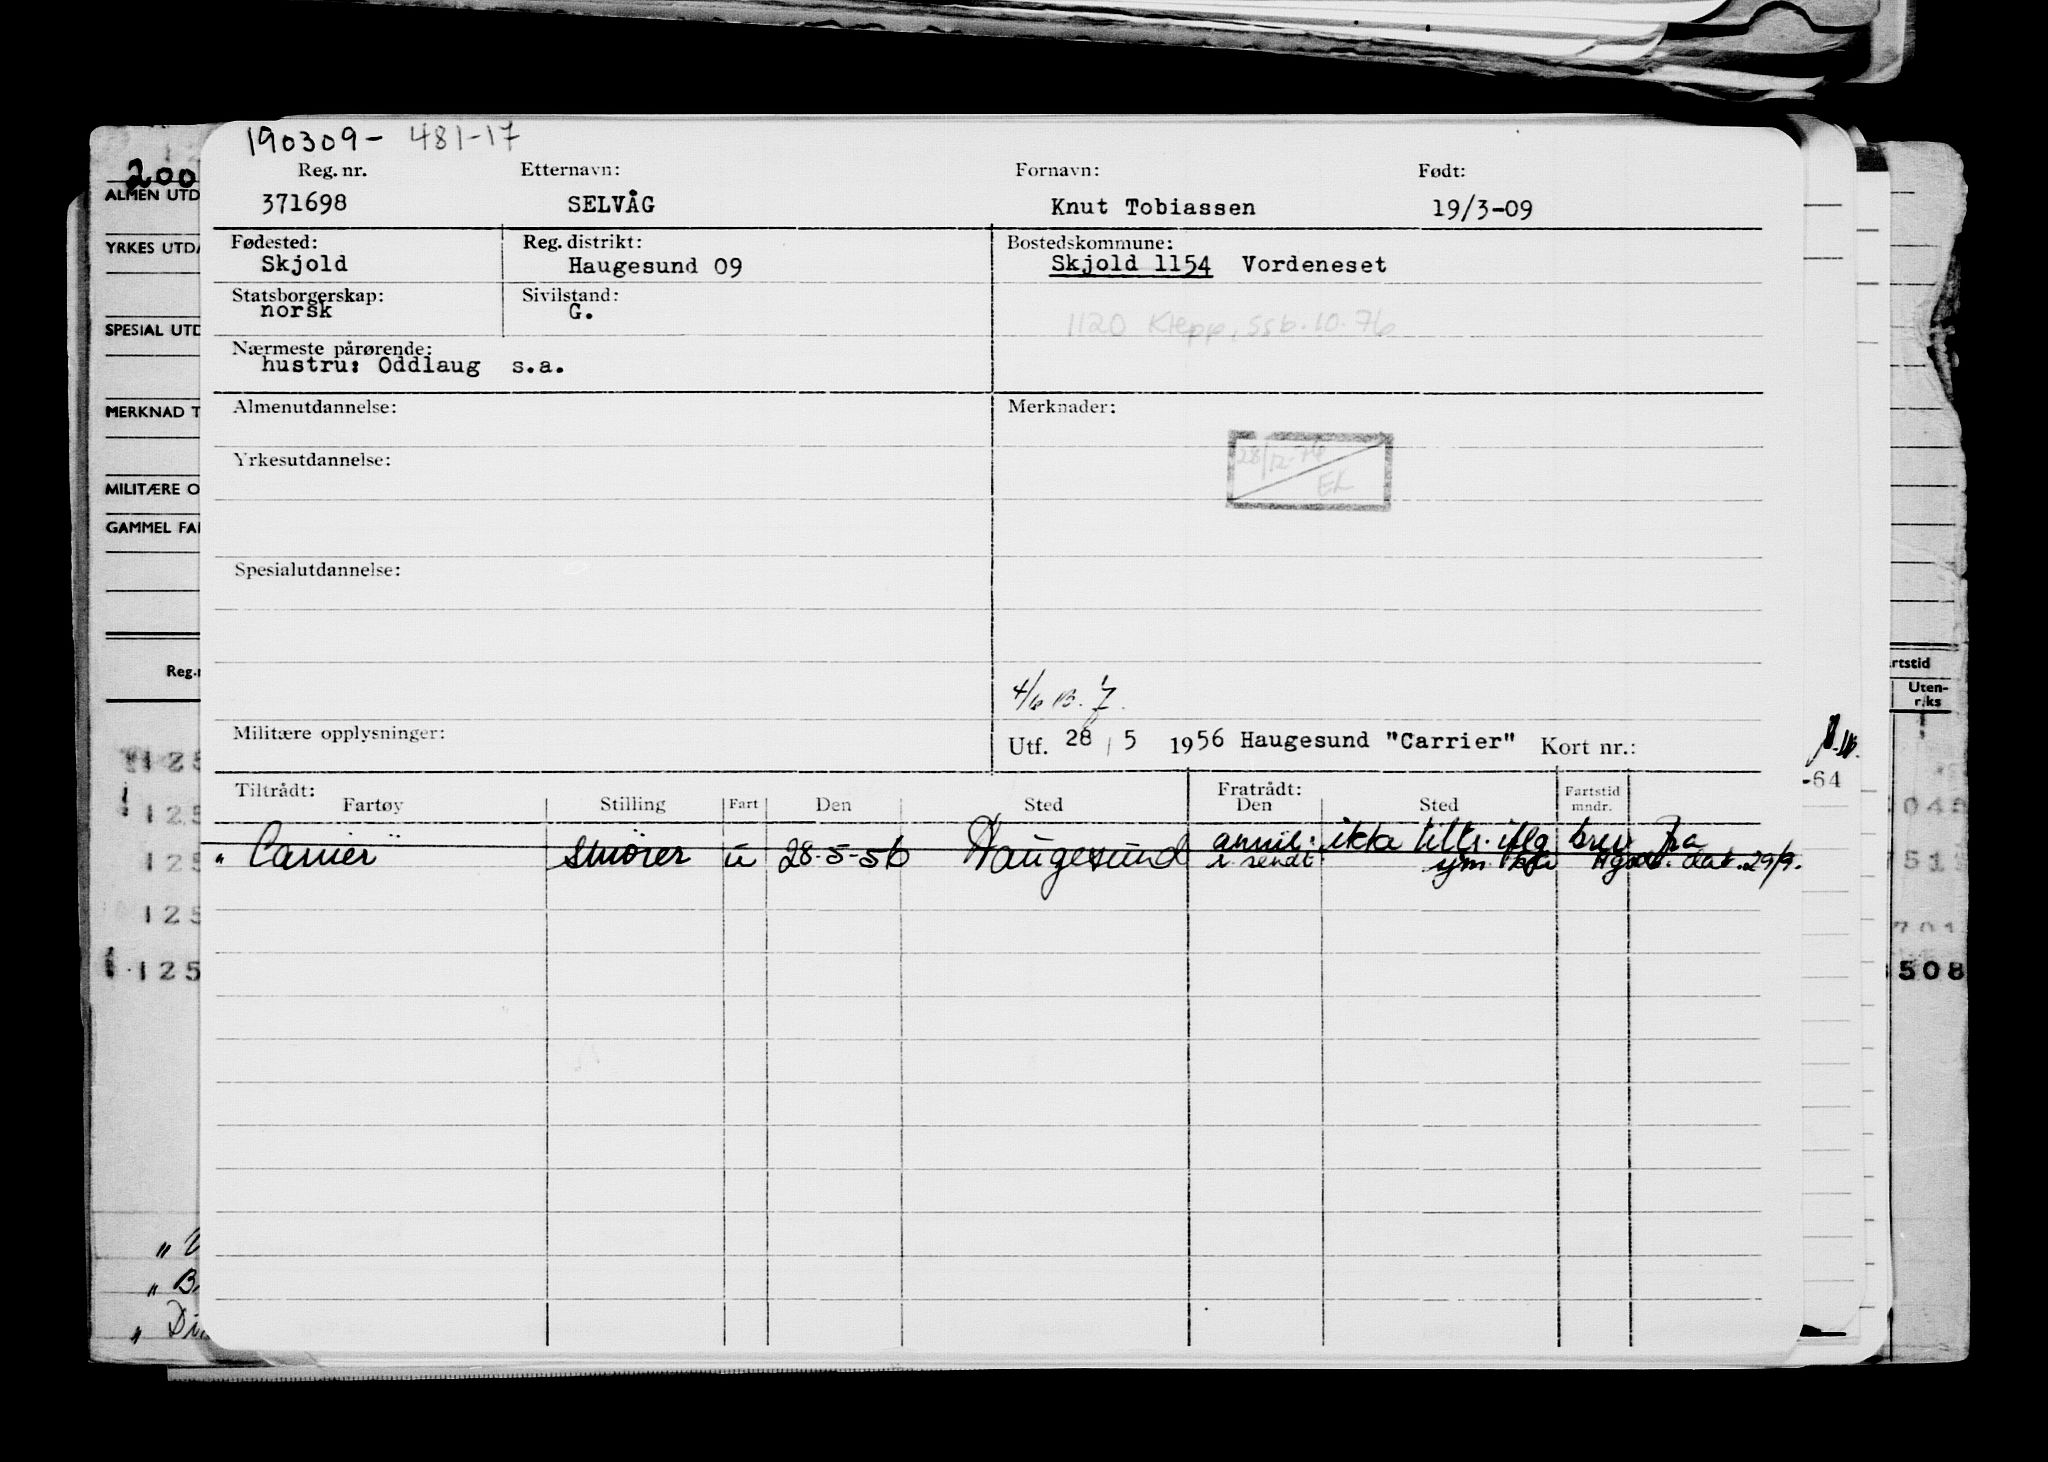 190309- 481-17
200
Reg. nr. Etternavn: Fornavn: Født:
371698 SELVÅG Knut Tobiassen 19/3-09
Fødested: Reg. distrikt: Bostedskommune:
Skjold Haugesund 09 Skjold 1154 Vordeneset
Statsborgerskap: Sivilstand:
norsk G.
1120 Klepp, ssb. 10. 76
Nærmeste pårørende:
hustru: Oddlaug s.a.
Almenutdannelse: Merknader:
28/12-76
EL
Yrkesutdannelse:
Spesialutdannelse:
4/6
Militære opplysninger: Utf. 28 / 5 1956 Haugesund "Carrier" Kort nr.:
Tiltrådt: Fratrådt:
Fartøy Stilling Fart Den Sted Den Sted Fartstid mndr.
" Carrier" smører u 28-5-56 Haugesund annul. ikke tiltr. iflg brev fra
dat. 29/9.
ALMEN UTD
YRKES UTDA
SPESIAL UTD
MERKNAD T
MILITÆRE O
GAMMEL FA
Reg.
125
125
125
125
125
rtstid
Uten-
riks
-64
508